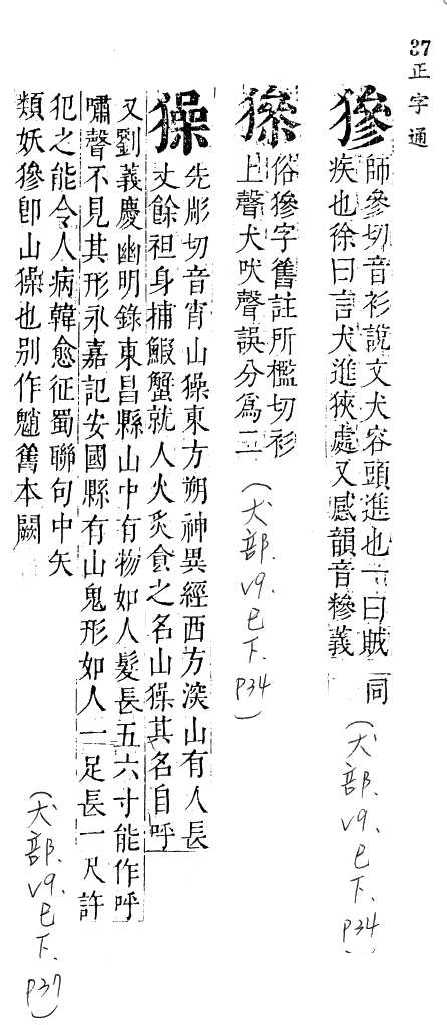 37 正字通
獫師參切音衫說文犬容頭進也一曰賊
疾也徐曰言犬進狹處又感韻音糝義同
(犬部. v9. 巳下. p34)
俗獫字舊註所檻切衫
上聲犬吠聲誤分為二
(犬部. v9. 巳下. p34)
㺐先彫切音宵山㺐東方朔神異經西方深山有人長
丈餘袒身捕鰕蟹就人火炙食之名山㺐其名自呼
又劉義慶幽明錄東昌縣山中有物如人髮長五六寸能作呼
嘯聲不見其形永嘉記安國縣有山鬼形如人一足長一尺許
犯之能令人病韓愈征蜀聯句中矢
類妖㺑卽山㺐也別作魈舊本闕
(犬部. v9. 巳下. p37)